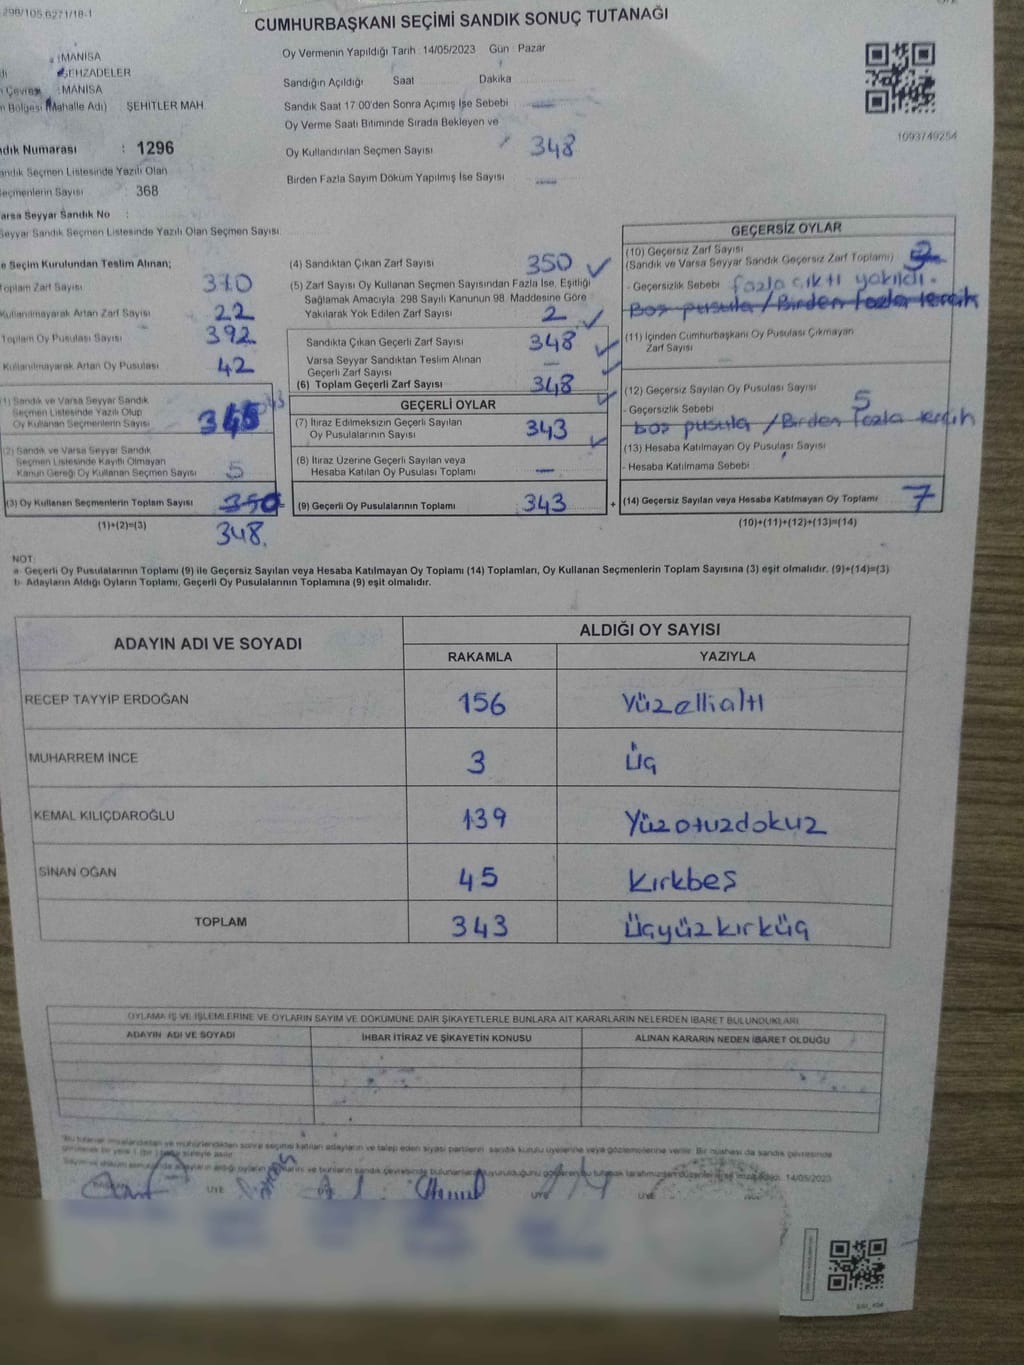 298/105.6271/18-1
CUMHURBAŞKANI SEÇİMİ SANDIK SONUÇ TUTANAĞI
:MANİSA
ŞEHZADELER
n Çevresi :MANİSA
n Bölgesi (Mahalle Adı) ŞEHİTLER MAH.
Oy Vermenin Yapıldığı Tarih : 14/05/2023 Gün : Pazar
Sandığın Açıldığı Saat Dakika
Sandık Saat 17:00'den Sonra Açılmış İse Sebebi
Oy Verme Saati Bitiminde Sırada Bekleyen ve
Oy Kullandırılan Seçmen Sayısı 348
Birden Fazla Sayım Döküm Yapılmış İse Sayısı —
1093749254
ndık Numarası : 1296
andık Seçmen Listesinde Yazılı Olan
eçmenlerin Sayısı : 368
arsa Seyyar Sandık No :
Seyyar Sandık Seçmen Listesinde Yazılı Olan Seçmen Sayısı:
e Seçim Kurulundan Teslim Alınan;
Toplam Zarf Sayısı 370
Kullanılmayarak Artan Zarf Sayısı 22
Toplam Oy Pusulası Sayısı 392
Kullanılmayarak Artan Oy Pusulası 42
(1) Sandık ve Varsa Seyyar Sandık
Seçmen Listesinde Yazılı Olup
Oy Kullanan Seçmenlerin Sayısı 345
(2) Sandık ve Varsa Seyyar Sandık
Seçmen Listesinde Kayıtlı Olmayan
Kanun Gereği Oy Kullanan Seçmen Sayısı 5
(3) Oy Kullanan Seçmenlerin Toplam Sayısı 350
(1)+(2)=(3)
348.
(4) Sandıktan Çıkan Zarf Sayısı 350 ✓
(5) Zarf Sayısı Oy Kullanan Seçmen Sayısından Fazla İse, Eşitliği
Sağlamak Amacıyla 298 Sayılı Kanunun 98. Maddesine Göre
Yakılarak Yok Edilen Zarf Sayısı 2 ✓
Sandıkta Çıkan Geçerli Zarf Sayısı 348 ✓
Varsa Seyyar Sandıktan Teslim Alınan
Geçerli Zarf Sayısı — ✓
(6) Toplam Geçerli Zarf Sayısı 348 ✓
GEÇERLİ OYLAR
(7) İtiraz Edilmeksizin Geçerli Sayılan
Oy Pusulalarının Sayısı 343 ✓
(8) İtiraz Üzerine Geçerli Sayılan veya
Hesaba Katılan Oy Pusulası Toplamı —
(9) Geçerli Oy Pusulalarının Toplamı 343 +
GEÇERSİZ OYLAR
(10) Geçersiz Zarf Sayısı
(Sandık ve Varsa Seyyar Sandık Geçersiz Zarf Toplamı)
- Geçersizlik Sebebi : fazla çıktı yakıldı.
Boş pusula / Birden fazla tercih
(11) İçinden Cumhurbaşkanı Oy Pusulası Çıkmayan
Zarf Sayısı
(12) Geçersiz Sayılan Oy Pusulası Sayısı 5
- Geçersizlik Sebebi
boş pusula / Birden fazla tercih
(13) Hesaba Katılmayan Oy Pusulası Sayısı
- Hesaba Katılmama Sebebi :
(14) Geçersiz Sayılan veya Hesaba Katılmayan Oy Toplamı 7
(10)+(11)+(12)+(13)=(14)
NOT:
a- Geçerli Oy Pusulalarının Toplamı (9) ile Geçersiz Sayılan veya Hesaba Katılmayan Oy Toplamı (14) Toplamları, Oy Kullanan Seçmenlerin Toplam Sayısına (3) eşit olmalıdır. (9)+(14)=(3)
b- Adayların Aldığı Oyların Toplamı, Geçerli Oy Pusulalarının Toplamına (9) eşit olmalıdır.
ADAYIN ADI VE SOYADI ALDIĞI OY SAYISI
RAKAMLA YAZIYLA
RECEP TAYYİP ERDOĞAN 156 Yüzellialtı
MUHARREM İNCE 3 Üç
KEMAL KILIÇDAROĞLU 139 Yüzotuzdokuz
SİNAN OĞAN 45 Kırkbeş
TOPLAM 343 Üçyüzkırküç
OYLAMA İŞ VE İŞLEMLERİNE VE OYLARIN SAYIM VE DÖKÜMÜNE DAİR ŞİKAYETLERLE BUNLARA AİT KARARLARIN NELERDEN İBARET BULUNDUKLARI
ADAYIN ADI VE SOYADI İHBAR İTİRAZ VE ŞİKAYETİN KONUSU ALINAN KARARIN NEDEN İBARET OLDUĞU
14/05/2023
ÜYE ÜYE ÜYE ÜYE